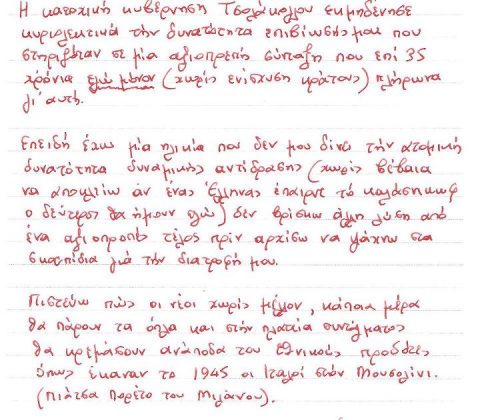 Η κατοχική κυβέρνηση Τσολάκογλου εκμηδένισε
κυριολεκτικά τήν δυνατότητα επιβίωσής μου που
στηριζόταν σε μία αξιοπρεπή σύνταξη που επί 35
χρόνια εγώ μόνον (χωρίς ενίσχυση κράτους) πλήρωνα
γι' αυτή.
Επειδή έχω μία ηλικία που δεν μου δίνει τήν ατομική
δυνατότητα δυναμικής αντίδρασης (χωρίς βέβαια
να αποκλείω άν ένας Έλληνας έπαιρνε τό καλάσνικωφ
ο δεύτερος θα ήμουν εγώ) δεν βρίσκω άλλη λύση από
ένα αξιοπρεπές τέλος πρίν αρχίσω να ψάχνω στα
σκουπίδια γιά τήν διατροφή μου.
Πιστεύω πώς οι νέοι χωρίς μέλλον, κάποια μέρα
θα πάρουν τα όπλα και στήν πλατεία συντάγματος
θα κρεμάσουν ανάποδα τους εθνικούς προδότες
όπως έκαναν το 1945 οι Ιταλοί στόν Μουσολίνι.
(πιάτσα Πορέτο του Μιλάνου).